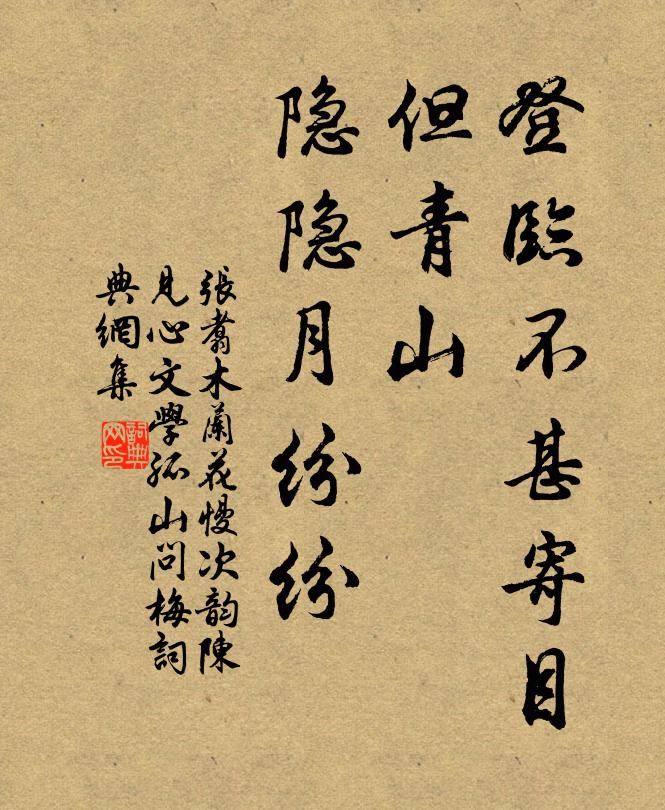 登臨不甚寄目
但青山
隐隐月纷纷
張翥木蘭花慢次韵陳
見心文學孤山問梅詞
典網集
詞典
网印